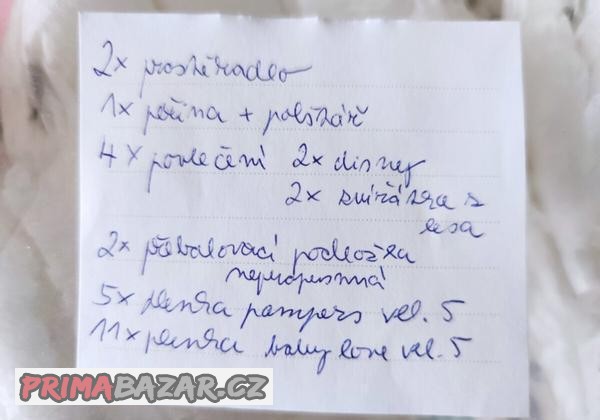 2x prostěradlo
1x peřina + polštář
4x povlečení 2x disney
2x zvířátka z
lesa
2x přebalovací podložka
nepropustná
5x plenka pampers vel. 5
11x plenka babylove vel. 5
PRIMABAZAR.CZ